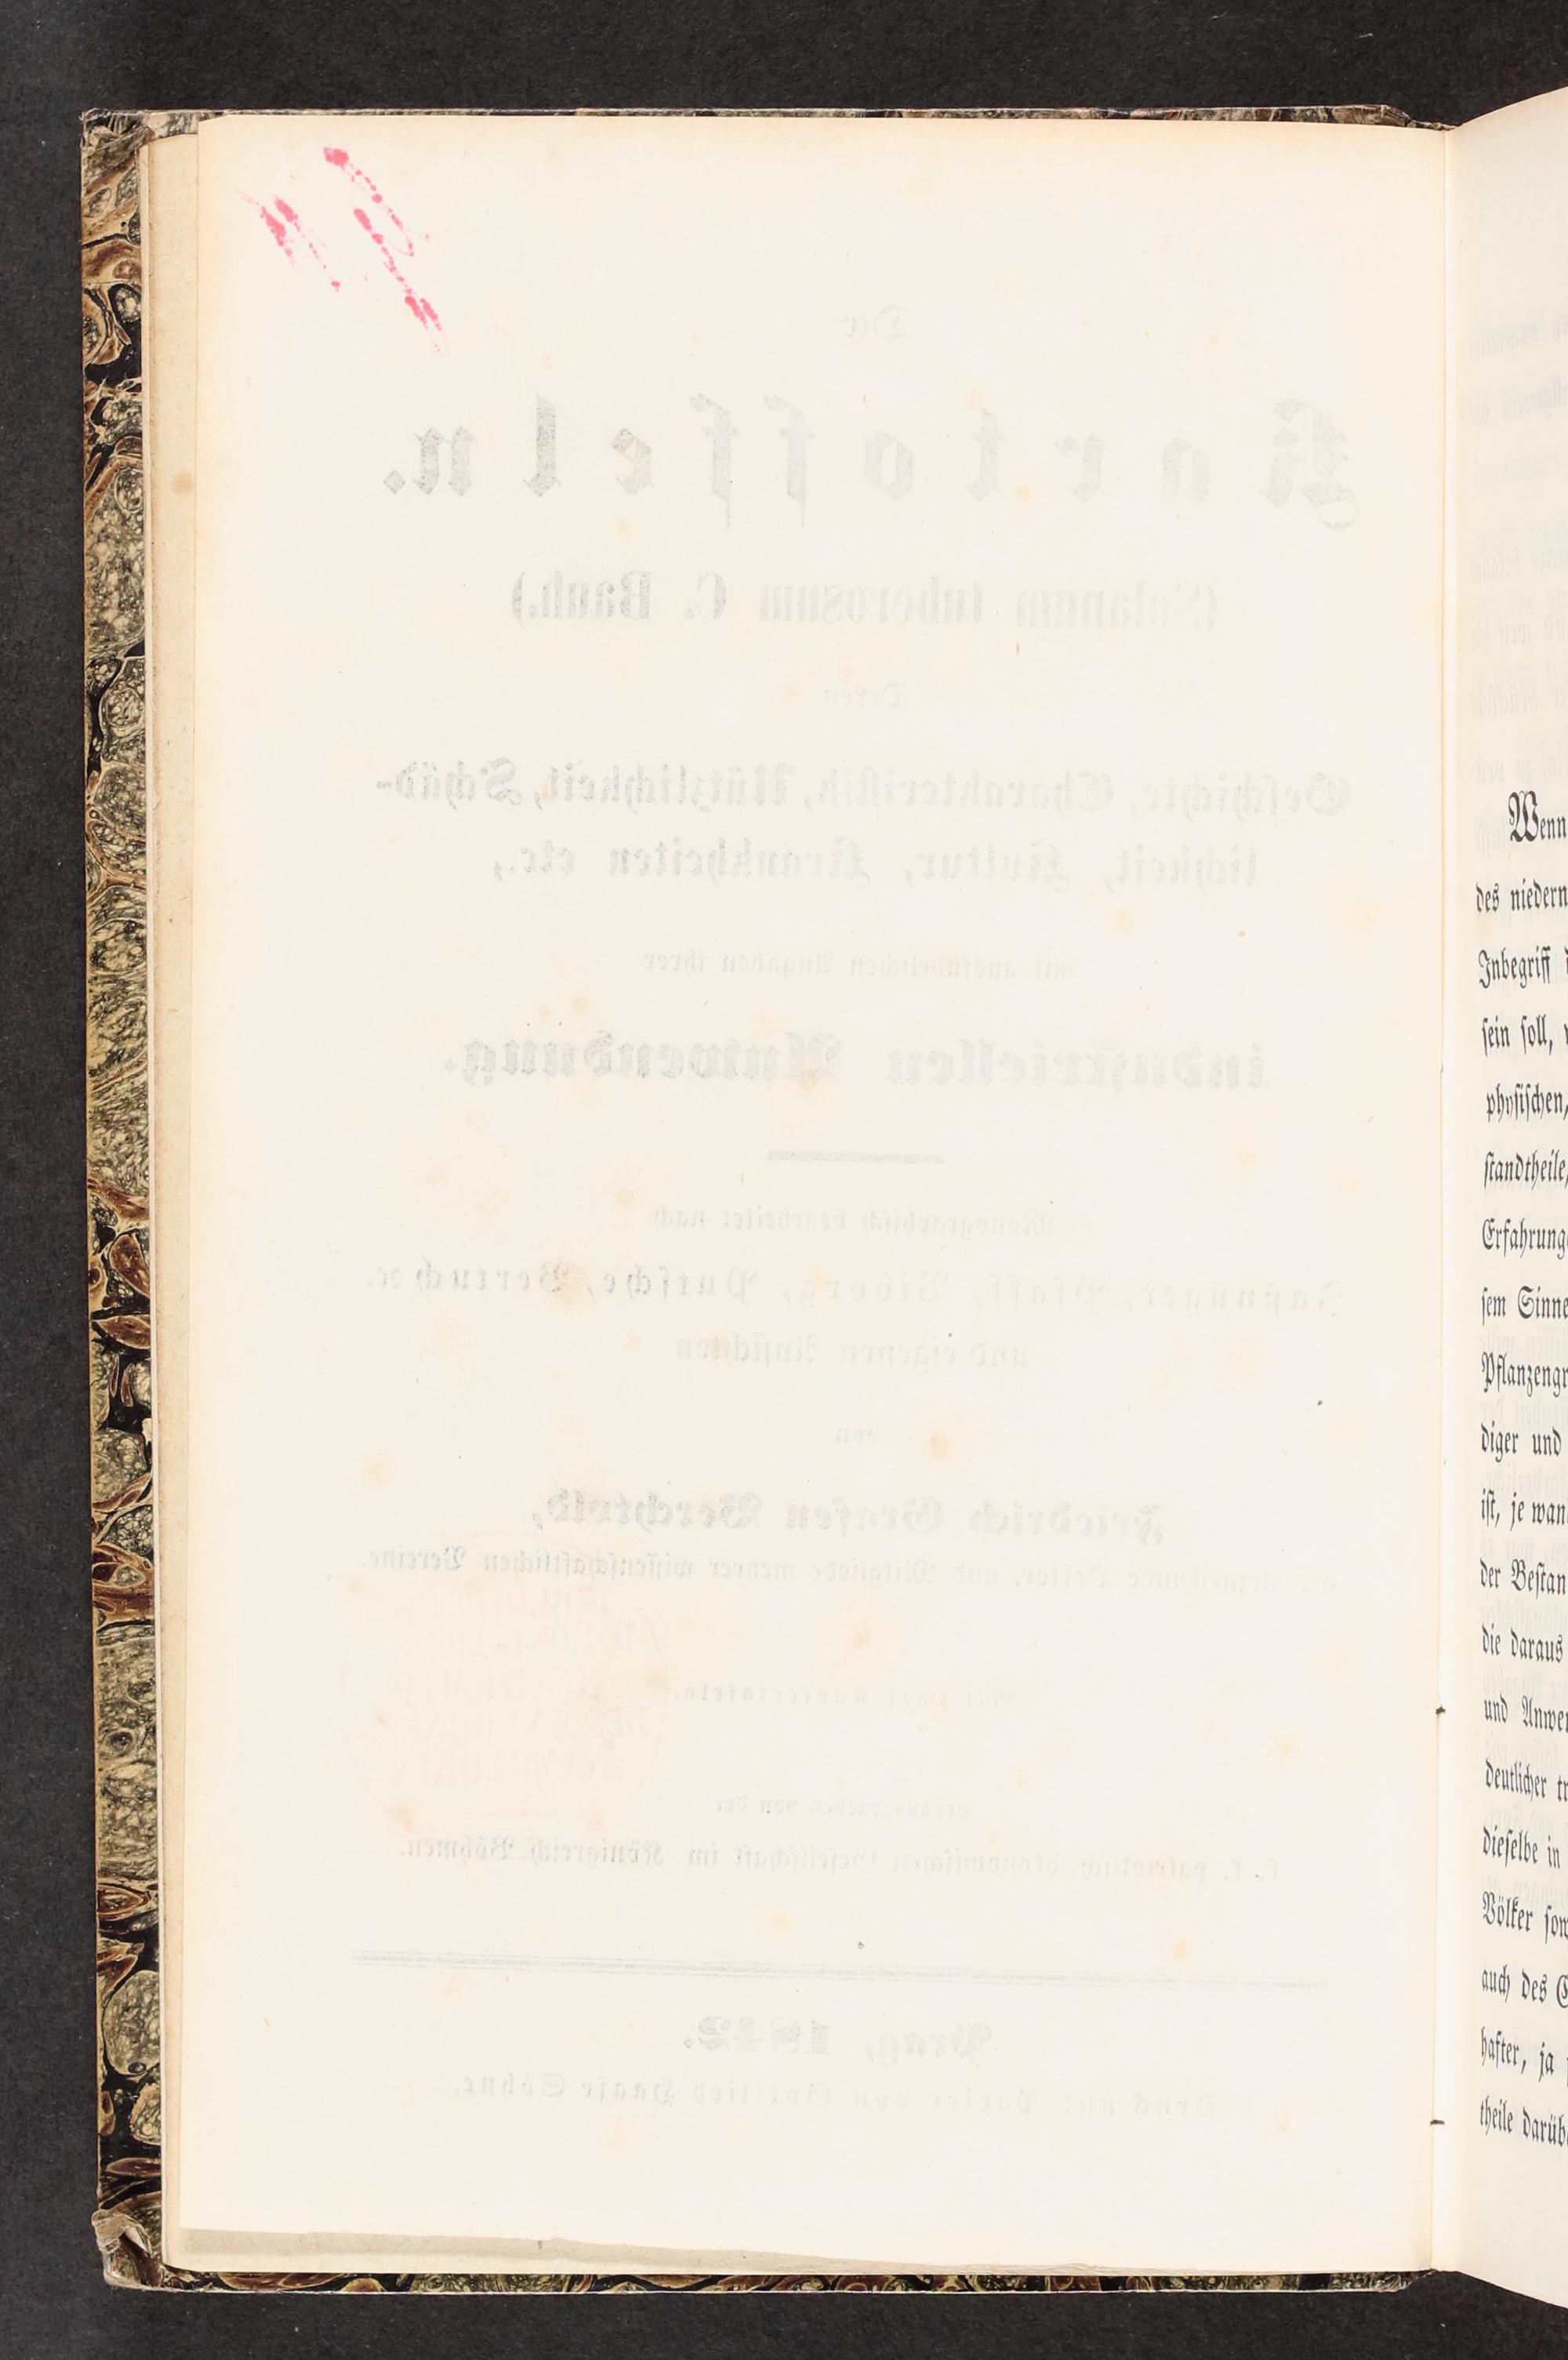 Die
Kartoffeln.
(Solanum tuberosum C. Bauh.)
Deren
Geschichte, Charakteristik, Nützlichkeit, Schäd-
lichkeit, Kultur, Krankheiten etc.,
mit ausführlichen Angaben ihrer
industriellen Anwendung.
Monographisch bearbeitet nach
Pfaff, Viborg, Putsche, Bertuch ꝛc.
und eigenen Ansichten
von
Friedrich Grafen Berchtold,
der Arzneikunde Doktor, und Mitgliede mehrer wissenschaftlichen Vereine.
Mit zwei Kupfertafeln.
Herausgegeben von der
k. k. patriotisch ökonomischen Gesellschaft im Königreich Böhmen.
Prag, 1842.
Druck und Papier von Gottlieb Haase Söhne.
Wenn
des niedern
Inbegriff
sein soll,
physischen,
standtheile,
sem Sinne
diger und
ist, je
die daraus
und
deutlicher
dieselbe in
Völker
auch des
hafter, ja
theile